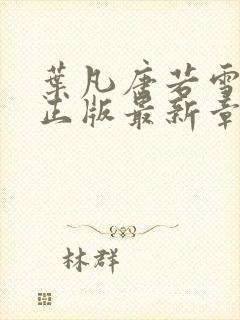 葉凡唐若雪
正版最新章
林群